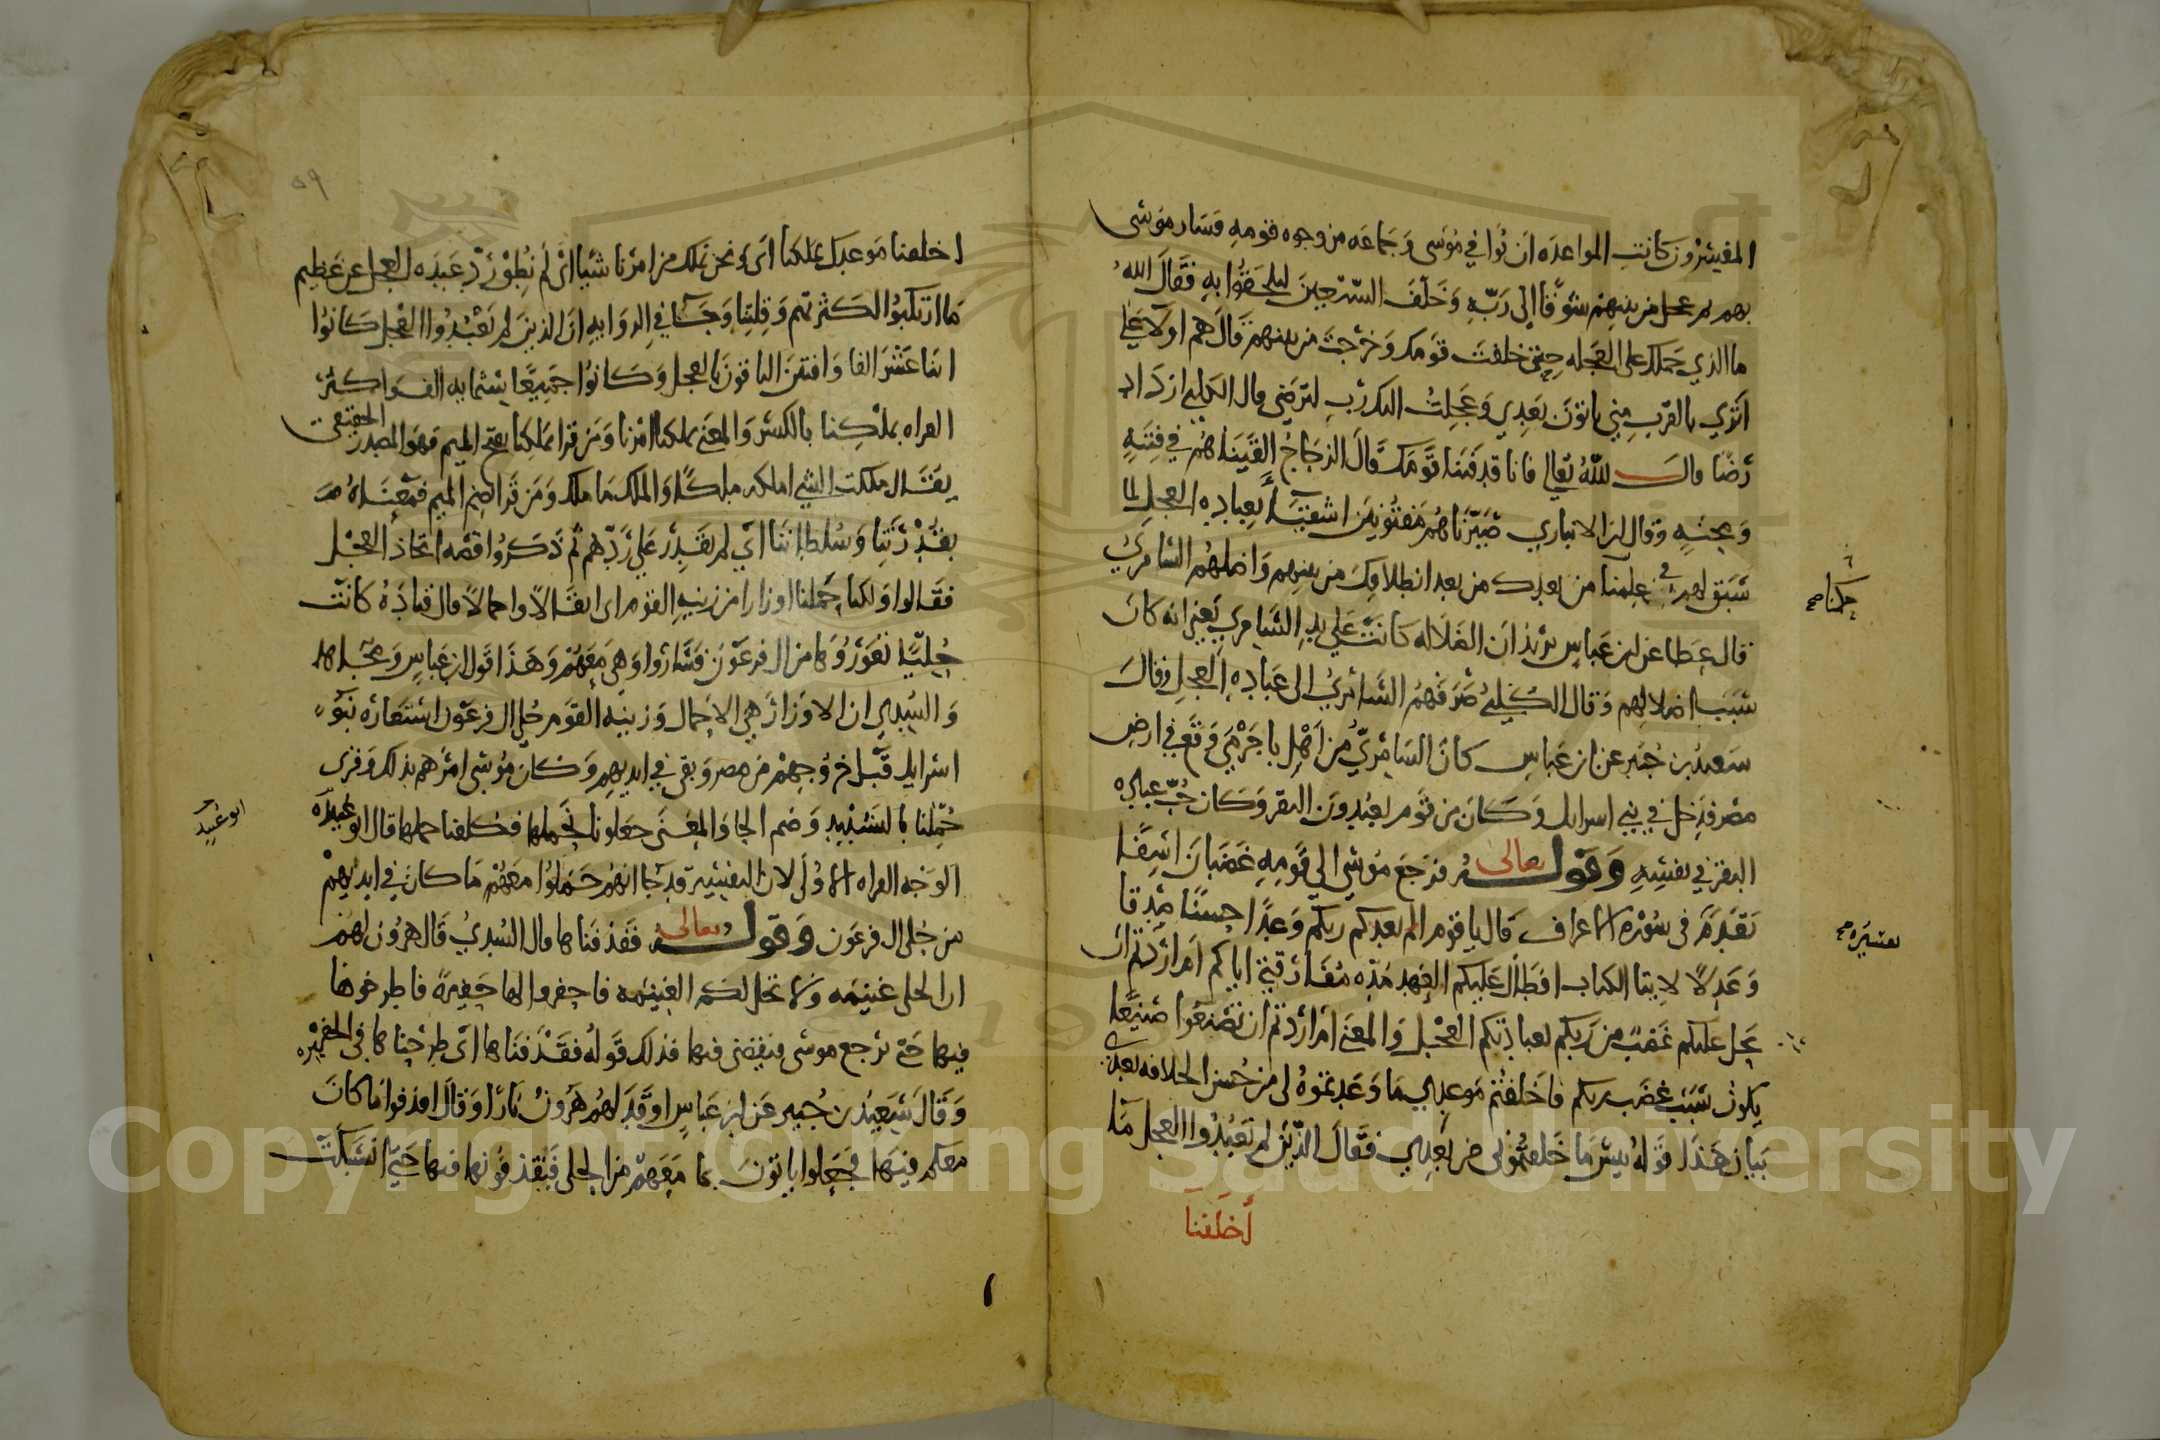 المفسرون كانت المواعدة ان يوافي موسى وجماعه من وجوه قومه فسار موسى
بهم ثم عجل من بينهم شوقا الى ربه وخلف السبعين ليلحقوا به فقال الله
ما الذي حملك على العجله حتى خلفت قومك وخرجت من بينهم قال هم اولاء على
اثري بالقرب مني ياتون بعدي وعجلت اليك رب لترضى قال الكلبي ازداد
رضا قال الله تعالى فانا قد فتنا قومك قال الزجاج القيناهم في فتنة
ومحنة وقال ابن الانباري صيرناهم مفتونين اشقياء بعباده العجل لما
سبق لهم في علمنا من بعدك من بعد انطلاقك من بينهم واضلهم السامري
حكمنا صح
قال عطا عن ابن عباس يريد ان الضلاله كانت على يد السامري يعني انه كان
سبب اضلالهم وقال الكلبي صرفهم السامري الى عباده العجل وقال
سعيد بن جبير عن ابن عباس كان السامري من اهل باجرمي فوقع في ارض
مصر فدخل في بني اسرايل وكان من قوم يعبدون البقر وكان حب عباده
البقر في نفسه وقوله تعالى فرجع موسى الى قومه غضبان اسفا
تقدم في سورة الاعراف قال يا قوم الم يعدكم ربكم وعدا حسنا صدقا
تفسيره صح
وعدلا لايتا الكتاب افطال عليكم العهد مده مفارقتي اياكم ام اردتم ان
يحل عليكم غضب من ربكم بعبادتكم العجل والمعنى ام اردتم ان تصنعوا صنيعا
يكون سبب غضب ربكم فاخلفتم موعدي ما وعدتموه لي من حسن الخلافه بعدي
بيان هذا قوله بيس ما خلفتموني من بعدي فقال الذين لم يعبدوا العجل ما
أخلفنا
٥٩
اخلفنا موعدك بملكنا اي ونحن نملك من امرنا شيا اي لم نطق رد عبده العجل عن عظيم
ما ارتكبوا لكثرتهم وقلتنا وجا في الروايه ان الذين لم يعبدوا العجل كانوا
اثنا عشر الفا وافتتن الباقون بالعجل وكانوا جميعا ستمايه الف واكثر
القراه بملكنا بالكسر والمعنى بملكنا امرنا ومن قرا بملكنا بفتح الميم فهو المصدر الحقيقي
يقال ملكت الشي املكه ملكا والملك ما ملك ومن قرا بضم الميم فمعناه
بقدرتنا وسلطاننا اي لم نقدر على ردهم ثم ذكروا قصه اتخاذ العجل
فقالوا ولكنا حملنا اوزارا من زينه القوم اي اثقالا واحمالا قال قتادة كانت
حليا تعوروها من ال فرعون فساروا وهي معهم وهذا قول ابن عباس ومجاهد
والسدي ان الاوزار هي الاحمال وزينه القوم حلي ال فرعون استعاره بنو
اسرايل قبل خروجهم من مصر وبقي في ايديهم وكان موسى امرهم بذلك وقرى
حملنا بالتشديد وضم الحا والمعنى جعلونا نحملها فكلفنا حملها قال ابو عبيده
ابو عبيد
الوجه القراه الاولى لان التفسير قد جا انهم حملوا معهم ما كان في ايديهم
من حلي ال فرعون وقوله تعالى فقذفناها قال السدي قال هرون لهم
ان الحلي غنيمه ولا تحل لكم الغنيمه فاحفروا لها حفيرة فاطرحوها
فيها حتى يرجع موسى فيقضي فيها فذلك قوله فقذفناها اي طرحناها في الحفيره
وقال سعيد بن جبير عن ابن عباس اوقد لهم هرون نارا وقال اقذفوا ما كان
معكم فيها فجعلوا ياتون بما معهم من الحلي فيقذفونها فيها حتى انسبكت
Copyright © King Saud University